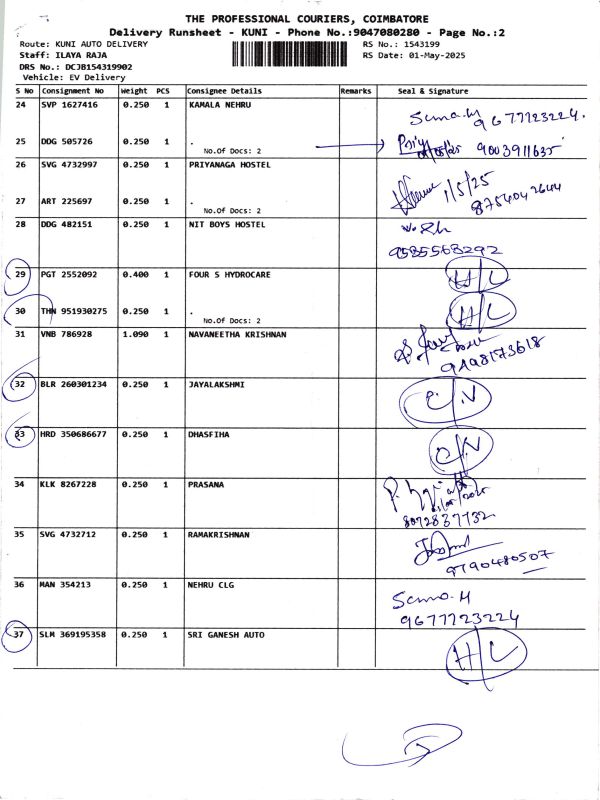 THE PROFESSIONAL COURIERS, COIMBATORE
Delivery Runsheet - KUNI - Phone No.:9047080280 - Page No.:2
Route: KUNI AUTO DELIVERY RS No.: 1543199
Staff: ILAYA RAJA RS Date: 01-May-2025
DRS No.: DCJB154319902
Vehicle: EV Delivery
S No Consignment No Weight PCS Consignee Details Remarks Seal & Signature
24 SVP 1627416 0.250 1 KAMALA NEHRU
9677123224.
25 DDG 505726 0.250 1 . 9003911635
No.Of Docs: 2
26 SVG 4732997 0.250 1 PRIYANAGA HOSTEL
1/5/25
27 ART 225697 0.250 1 . 8754042644
No.Of Docs: 2
28 DDG 482151 0.250 1 NIT BOYS HOSTEL
9585568292
29 PGT 2552092 0.400 1 FOUR S HYDROCARE H/L
30 THN 951930275 0.250 1 . H/L
No.Of Docs: 2
31 VNB 786928 1.090 1 NAVANEETHA KRISHNAN
9498173618
32 BLR 260301234 0.250 1 JAYALAKSHMI
33 HRD 350686677 0.250 1 DHASFIHA
34 KLK 8267228 0.250 1 PRASANA
8072837732
35 SVG 4732712 0.250 1 RAMAKRISHNAN
9790480507
36 MAN 354213 0.250 1 NEHRU CLG
9677723224
37 SLM 369195358 0.250 1 SRI GANESH AUTO H/L